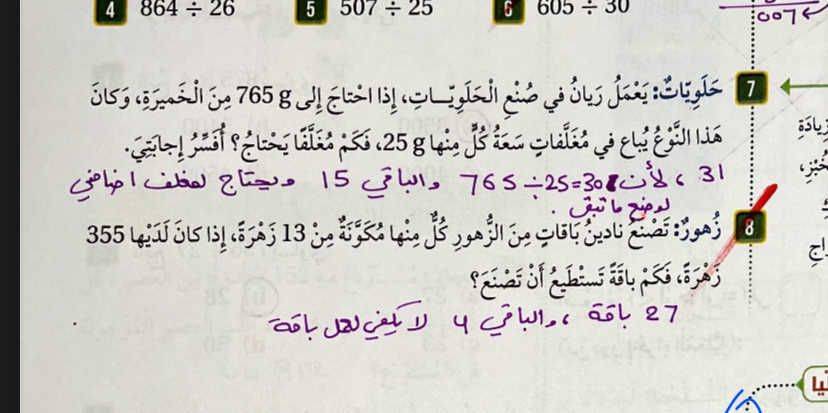 4 864 ÷ 26 5 507 ÷ 25 6 605 ÷ 30
7 حَلَوِيّاتٌ: يَعْمَلُ رَيانُ في صُنْعِ الْحَلَوِيّـاتِ، إذا احْتاجَ إلى 765 g مِنَ الْخَميرَةِ، وَكانَ
هَذا النَّوْعُ يُباع في مُغَلَّفاتٍ سَعَةُ كُلٍّ مِنْها 25 g، فَكَمْ مُغَلَّفًا يَحْتاجُ؟ أُفَسِّرُ إجابَتِيَ.
31 ، لأن 765÷25=30 والباقي 15 ويحتاج لمغلف اضافي
لوضع ما تبقى .
8 زُهورٌ: تَصْنَعُ نادينُ بَاقاتٍ مِنَ الزُّهورِ كُلٌّ مِنْها مُكَوَّنَةٌ مِنْ 13 زَهْرَةً، إذا كانَ لَدَيْها 355
زَهْرَةً، فَكَمْ باقَةً تَسْتَطيعُ أَنْ تَصْنَعَ؟
27 باقة ، والباقي 4 لا يكفي لعمل باقة